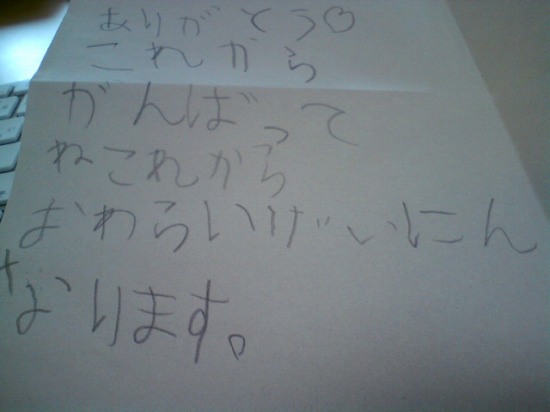 ありがとう♡
これから
がんばって
ねこれから
おわらいげいにん
なります。